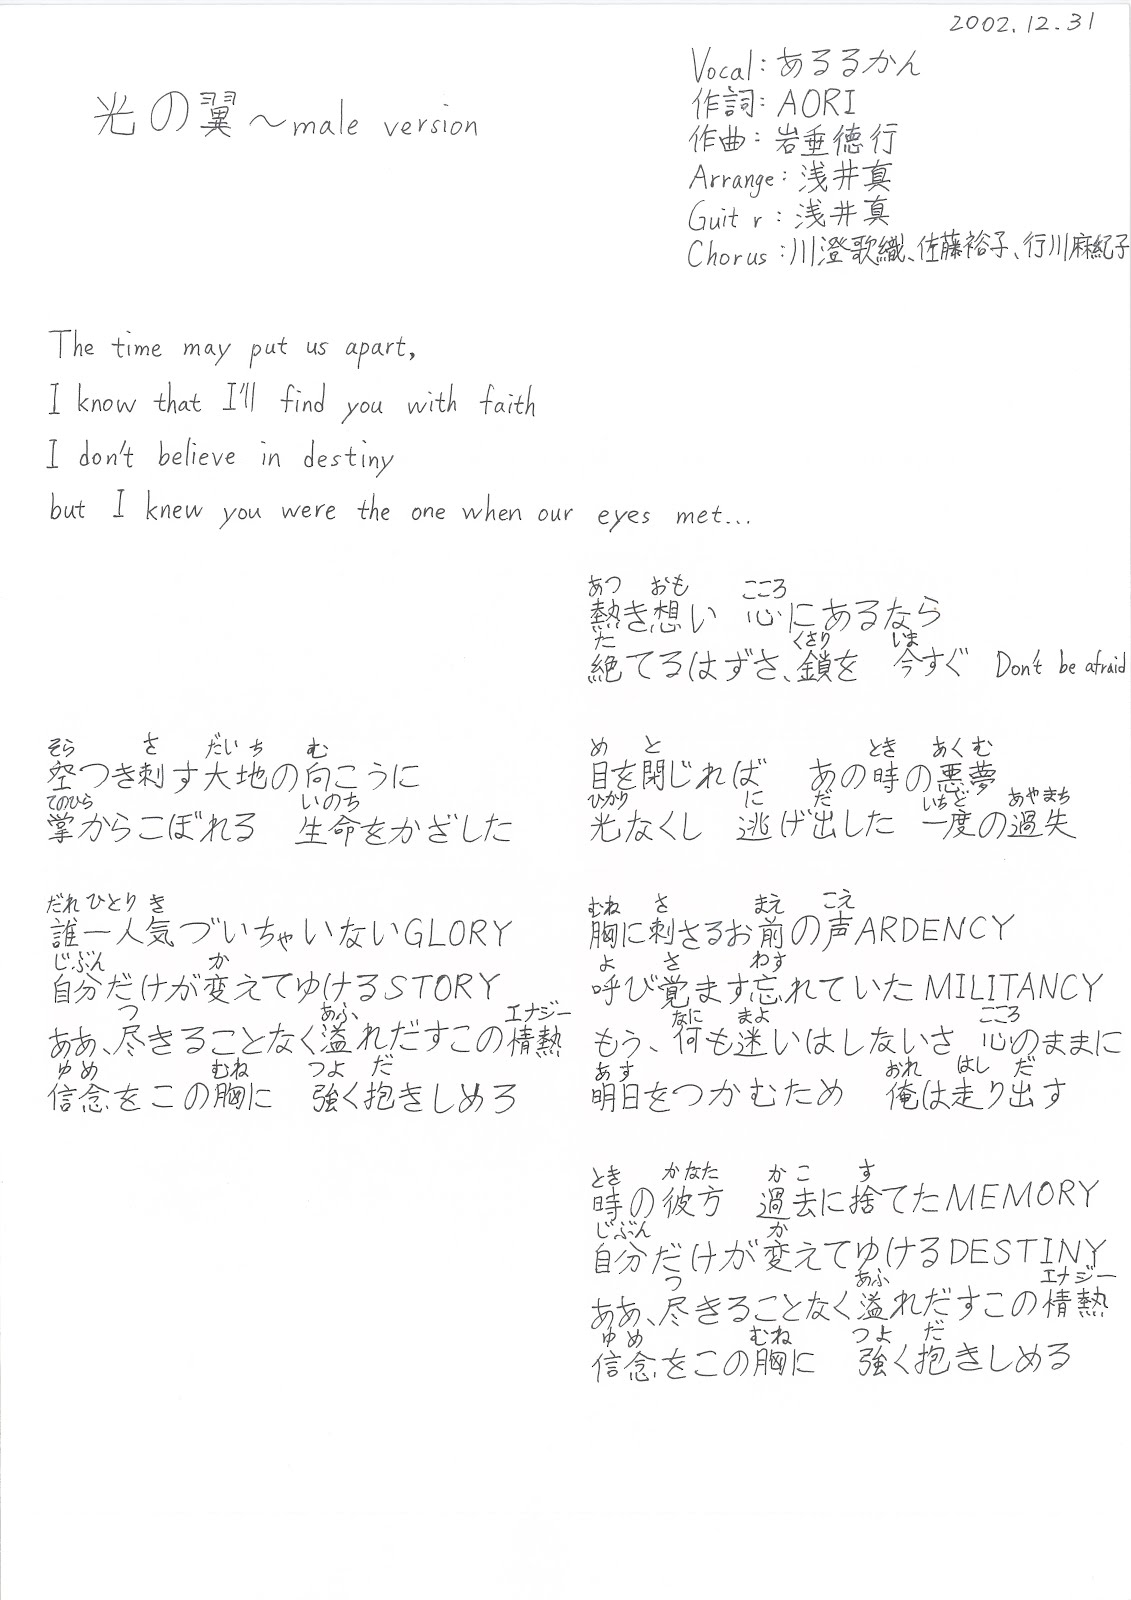 2002.12.31
光の翼～male version
Vocal：あるるかん
作詞：AORI
作曲：岩垂徳行
Arrange：浅井真
Guit r：浅井真
Chorus：川澄歌織、佐藤裕子、行川麻紀子
The time may put us apart,
I know that I'll find you with faith
I don't believe in destiny
but I knew you were the one when our eyes met...
そら さ だい ち む
空つき刺す大地の向こうに
てのひら いのち
掌からこぼれる 生命をかざした
だれ ひとり き
誰一人気づいちゃいないGLORY
じぶん か
自分だけが変えてゆけるSTORY
つ あふ エナジー
ああ、尽きることなく溢れだすこの情熱
ゆめ むね つよ だ
信念をこの胸に 強く抱きしめろ
あつ おも こころ
熱き想い 心にあるなら
た くさり いま
絶てるはずさ、鎖を 今すぐ Don't be afraid
め と とき あくむ
目を閉じれば あの時の悪夢
ひかり に だ いちど あやまち
光なくし 逃げ出した 一度の過失
むね さ まえ こえ
胸に刺さるお前の声ARDENCY
よ さ わす
呼び覚ます忘れていたMILITANCY
なに まよ こころ
もう、何も迷いはしないさ 心のままに
あす おれ はし だ
明日をつかむため 俺は走り出す
とき かなた かこ す
時の彼方 過去に捨てたMEMORY
じぶん か
自分だけが変えてゆけるDESTINY
つ あふ エナジー
ああ、尽きることなく溢れだすこの情熱
ゆめ むね つよ だ
信念をこの胸に 強く抱きしめる